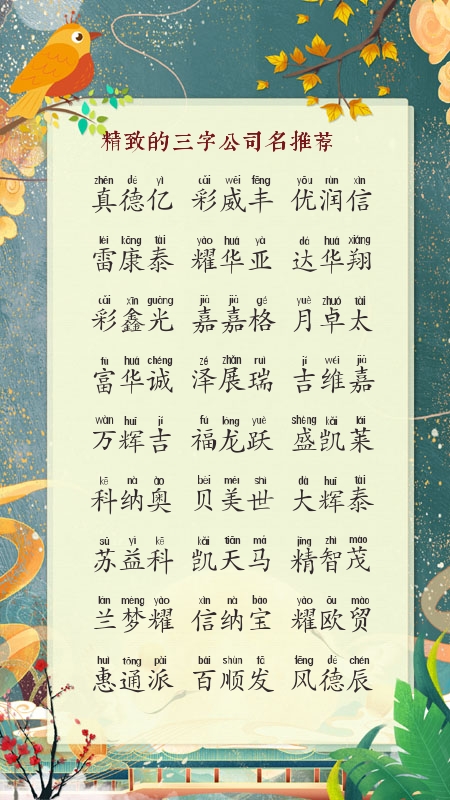 精致的三字公司名推荐
zhēn dé yì cǎi wēi fēng yōu rùn xìn
真德亿 彩威丰 优润信
léi kāng tài yào huá yà dá huá xiáng
雷康泰 耀华亚 达华翔
cǎi xīn guāng jiā jiā gé yuè zhuó tài
彩鑫光 嘉嘉格 月卓太
fù huá chéng zé zhǎn ruì jí wéi jiā
富华诚 泽展瑞 吉维嘉
wàn huī jí fú lóng yuè shèng kǎi lái
万辉吉 福龙跃 盛凯莱
kē nà ào bèi měi shì dà huī tài
科纳奥 贝美世 大辉泰
sū yì kē kǎi tiān mǎ jīng zhì mào
苏益科 凯天马 精智茂
lán mèng yào xìn nà bǎo yào ōu mào
兰梦耀 信纳宝 耀欧贸
huì tōng pài bǎi shùn fā fēng dé chén
惠通派 百顺发 风德辰